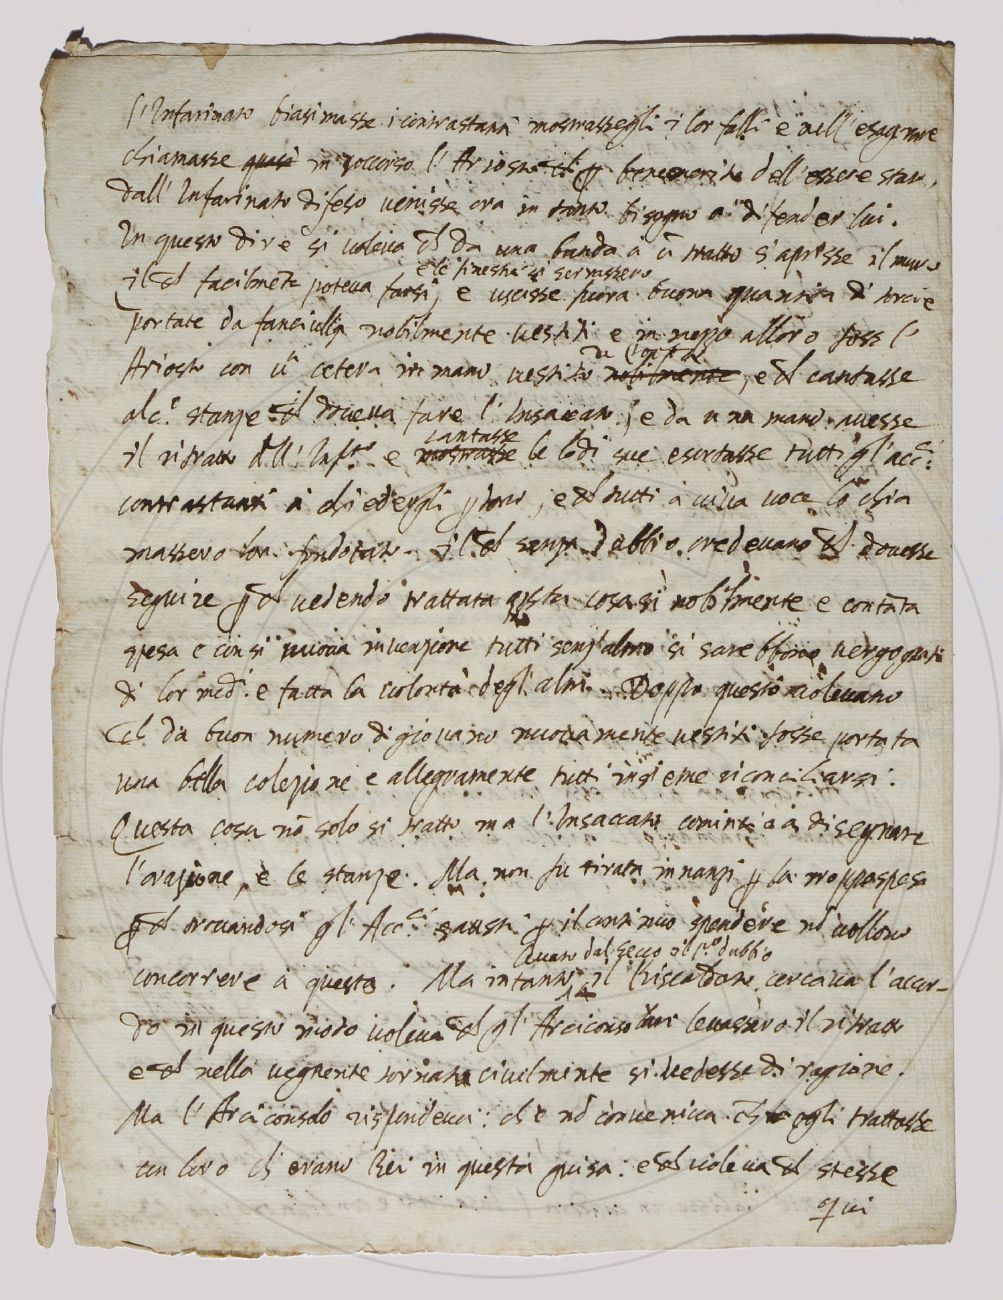 l'Infarinato biasimasse i contrastanti mostrassegli i lor falli e nell'esagerare
chiamasse quasi in soccorso l'Ariosto ch p benemerito dell'essere stato
dall'Infarinato difeso venisse ora in tanto bisogno a difender lui.
In questo dire si voleva ch da una banda a ũ tratto s'aprisse il muro
e le finestre si serrassero
il ch facilmẽte poteva farsi, e uscisse fuora buona quantità di torcie
portate da fanciulli nobilmente vestiti e in mezzo a lloro foss l'
Ariosto con ũ cetera in mano vestito nobilmente, e ch cantasse
alc.e stanze ch doveva fare l'Insaccato, e da una mano avesse
cantasse
il ritratto dell'Inf.to e mostrasse le lodi sue esortasse tutti gl'acc.ci
contrastanti a chiedergli p dono, e ch tutti a viva voce lo chia
massero lor. il ch senza dubbio credevano ch dovesse
seguire p ch vedendo trattata qsta cosa sì nobilmente e con tãta
spesa e con sì nuova invenzione tutti senz'altro si sarebbono vergognati
di lor med.i e fatta la volontà degl'altri. Doppo questo volevano
ch da buon numero di giovani nuovamente vestiti fosse portata
una bella colezione e allegramente tutti insieme riconciliarsi.
Questa cosa nõ solo si trattò ma l'Insaccato cominciò a disegnare
l'orazione, e le stanze. Ma non fu tirata innanzi p la troppa spesa
p ch trovandosi gl'Acc.ci p il continuo spendere nõ vollono
levato dal Secco il p.o dubbio
concorrere a questa. Ma intanto il Riscaldato cercava l'accor-
do in questo modo voleva ch gl'Arciconsoli levassero il ritratto
e ch nella vegnente tornata civilmente si vedesse di ragione.
Ma l'Arciconsolo rispondeva: ch e nõ conveniva ch egli trattasse
con loro ch erano Rei in questa guisa: e ch voleva ch stesse
qui